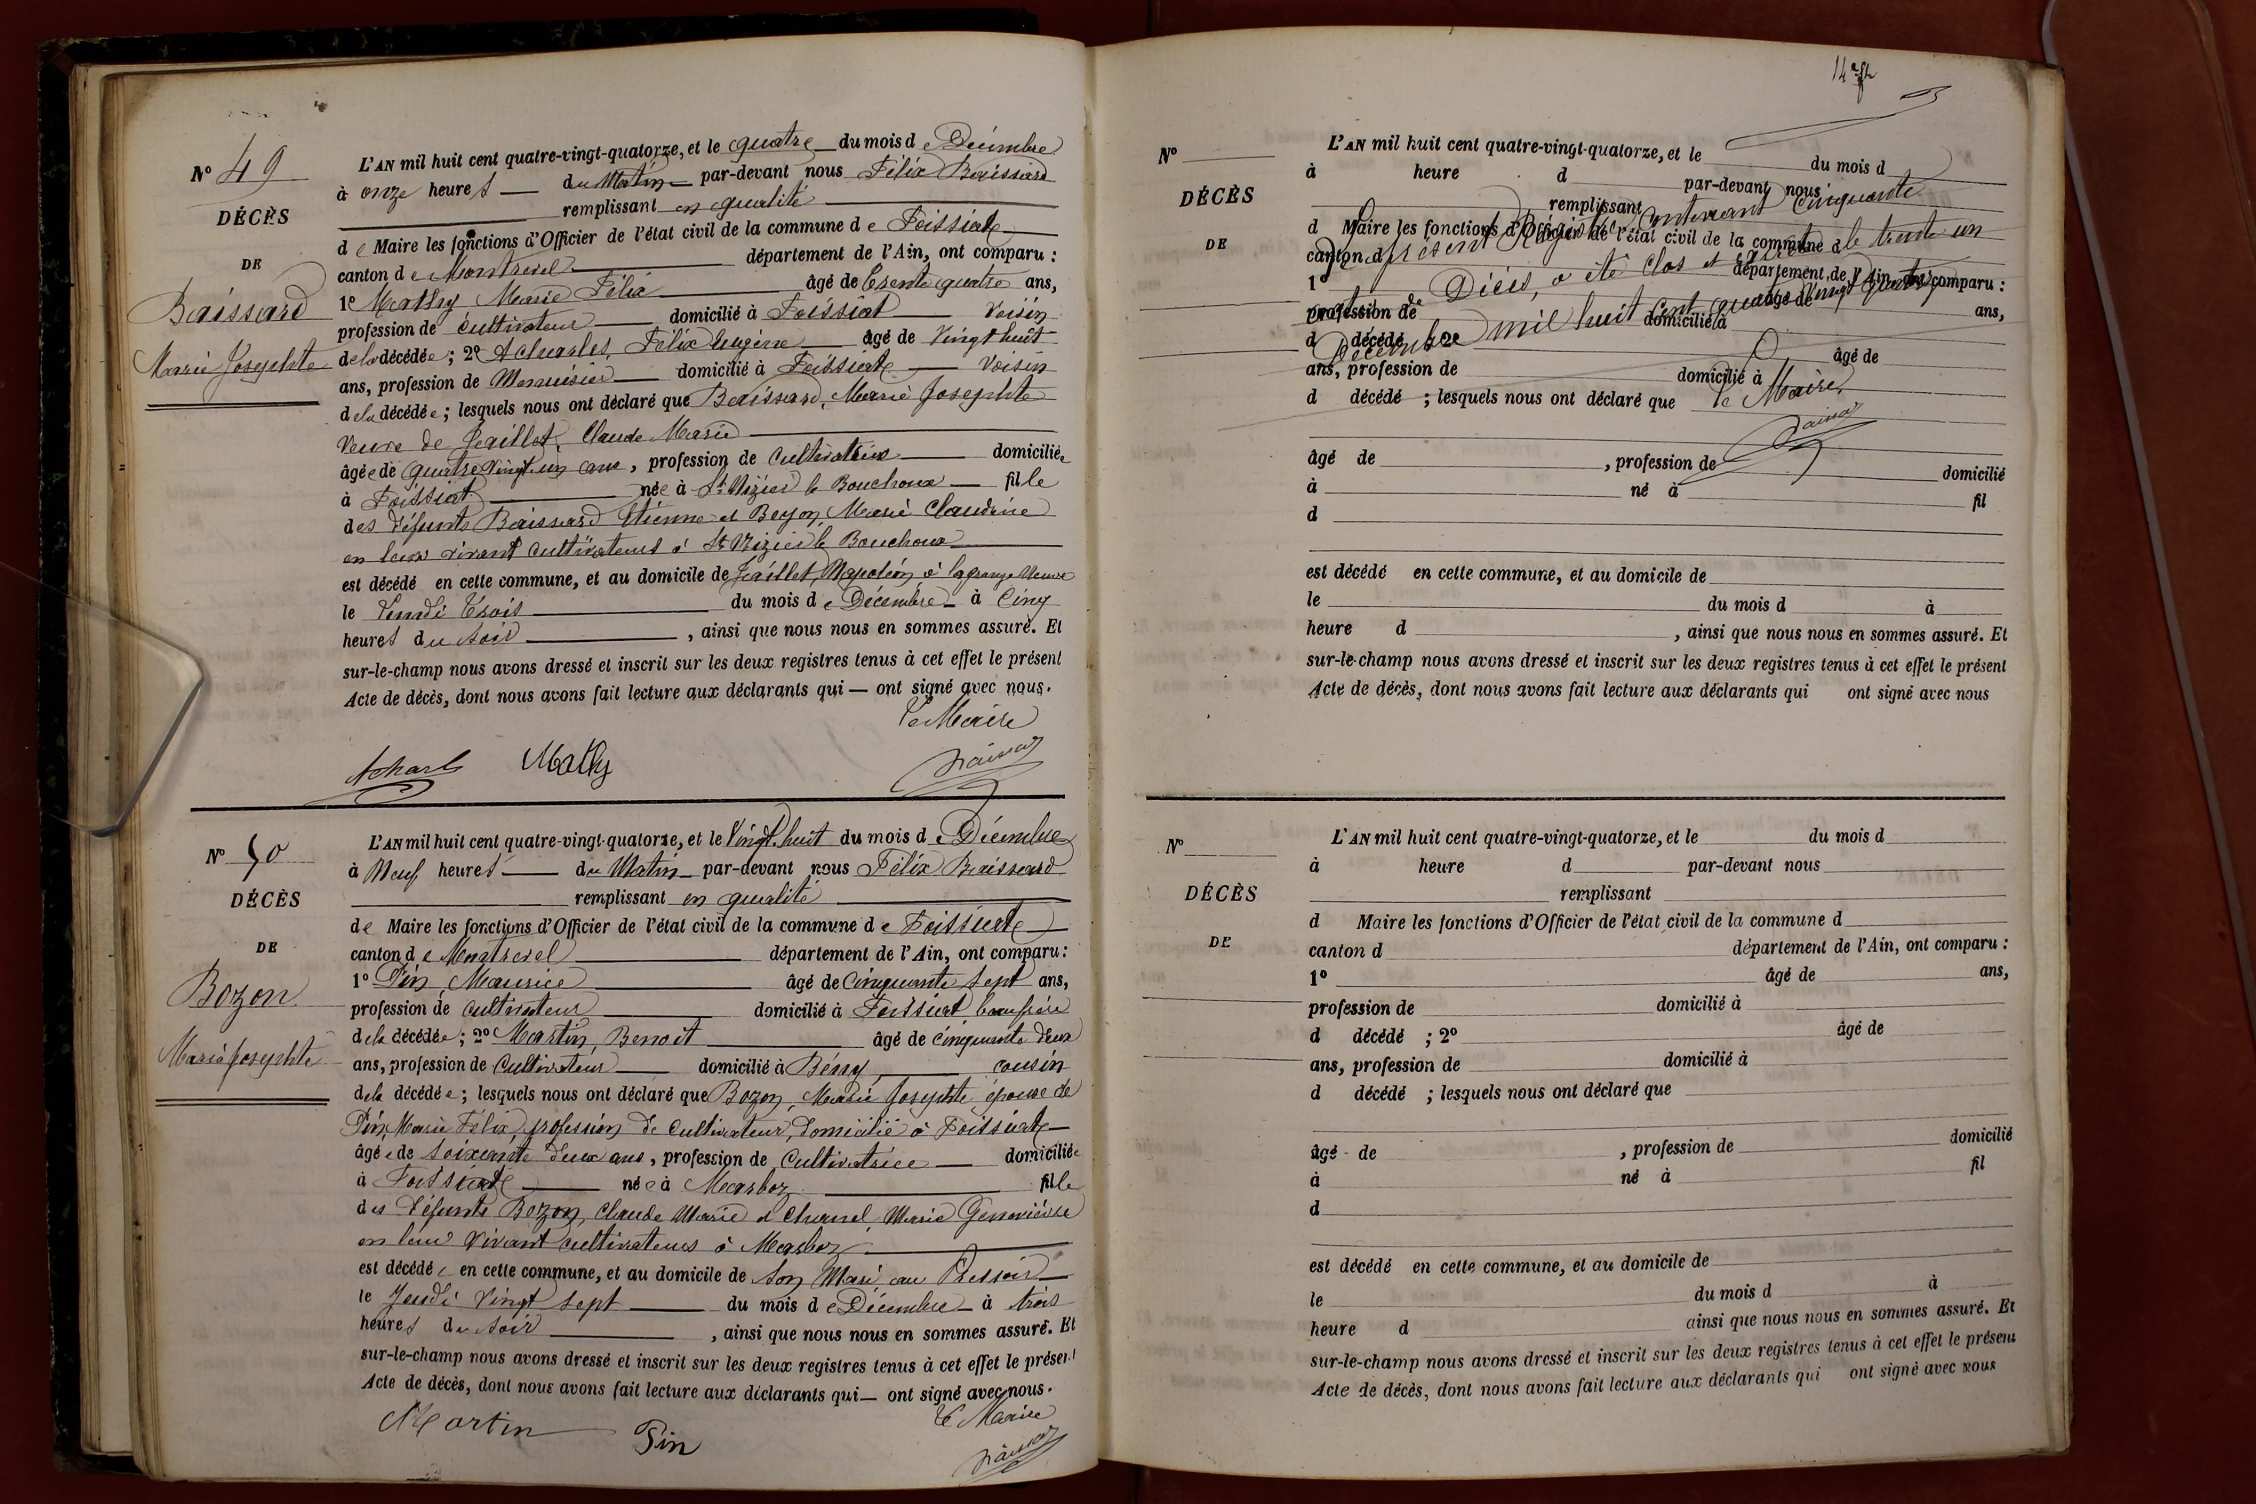 N° 49
DÉCÈS
DE
Baissard
Marie Josephte
L'AN mil huit cent quatre-vingt-quatorze, et le quatre du mois de Décembre
à onze heures du Matin par-devant nous Félix Baissard
remplissant en qualité
de Maire les fonctions d'Officier de l'état civil de la commune de Foissiat
canton de Montrevel département de l'Ain, ont comparu :
1° Mathy Marie Félix âgé de trente quatre ans,
profession de cultivateur domicilié à Foissiat voisin
de la décédée ; 2° Acharles, Félix Eugène âgé de vingt huit
ans, profession de Menuisier domicilié à Foissiat voisin
de la décédée ; lesquels nous ont déclaré que Baissard, Marie Josephte
veuve de Jaillet, Claude Marie
âgée de quatre vingt un ans, profession de cultivatrice domiciliée
à Foissiat née à St Nizier le Bouchoux fille
des défunts Baissard Etienne et Beyon, Marie Claudine
en leur vivant cultivateurs à St Nizier le Bouchoux
est décédé en cette commune, et au domicile de Jaillet, Napoléon, à lagrange Neuve
le Lundi trois du mois de Décembre à Cinq
heures du soir , ainsi que nous nous en sommes assuré. Et
sur-le-champ nous avons dressé et inscrit sur les deux registres tenus à cet effet le présent
Acte de décès, dont nous avons fait lecture aux déclarants qui — ont signé avec nous.
Le Maire
Acharl Mathy
N° 50
DÉCÈS
DE
Bozon
Marie Josephte
L'AN mil huit cent quatre-vingt-quatorze, et le vingt huit du mois de Décembre
à Neuf heures du Matin par-devant nous Félix Baissard
remplissant en qualité
de Maire les fonctions d'Officier de l'état civil de la commune de Foissiat
canton de Montrevel département de l'Ain, ont comparu :
1° Pin Maurice âgé de cinquante sept ans,
profession de cultivateur domicilié à Foissiat beau frère
de la décédée ; 2° Martin, Benoit âgé de cinquante deux
ans, profession de cultivateur domicilié à Bény cousin
de la décédée ; lesquels nous ont déclaré que Bozon, Marie Josephte épouse de
Pin, Marie Félix, profession de cultivateur, domicilié à Foissiat
âgée de soixante deux ans, profession de cultivatrice domiciliée
à Foissiat née à Marboz fille
des défunts Bozon, Claude Marie et Chanel, Marie Geneviève
en leur vivant cultivateurs à Marboz
est décédée en cette commune, et au domicile de son Mari au Pressoir
le Jeudi vingt sept du mois de Décembre à trois
heures du soir , ainsi que nous nous en sommes assuré. Et
sur-le-champ nous avons dressé et inscrit sur les deux registres tenus à cet effet le présent
Acte de décès, dont nous avons fait lecture aux déclarants qui — ont signé avec nous.
Le Maire
Martin Pin
N°
DÉCÈS
DE
L'AN mil huit cent quatre-vingt-quatorze, et le du mois d
à heure d par-devant nous
remplissant
d Maire les fonctions d'Officier de l'état civil de la commune d
canton d département de l'Ain, ont comparu :
1° âgé de ans,
profession de domicilié à
d décédé ; 2° âgé de
ans, profession de domicilié à
d décédé ; lesquels nous ont déclaré que
Le présent Registre contenant cinquante
actes de Décès, a été clos et arrêté le trente un
Décembre mil huit cent quatre vingt quatorze
Le Maire
âgé de , profession de domicilié
à né à fil
d
est décédé en cette commune, et au domicile de
le du mois d à
heure d , ainsi que nous nous en sommes assuré. Et
sur-le-champ nous avons dressé et inscrit sur les deux registres tenus à cet effet le présent
Acte de décès, dont nous avons fait lecture aux déclarants qui ont signé avec nous
N°
DÉCÈS
DE
L'AN mil huit cent quatre-vingt-quatorze, et le du mois d
à heure d par-devant nous
remplissant
d Maire les fonctions d'Officier de l'état civil de la commune d
canton d département de l'Ain, ont comparu :
1° âgé de ans,
profession de domicilié à
d décédé ; 2° âgé de
ans, profession de domicilié à
d décédé ; lesquels nous ont déclaré que
âgé de , profession de domicilié
à né à fil
d
est décédé en cette commune, et au domicile de
le du mois d à
heure d ainsi que nous nous en sommes assuré. Et
sur-le-champ nous avons dressé et inscrit sur les deux registres tenus à cet effet le présent
Acte de décès, dont nous avons fait lecture aux déclarants qui ont signé avec nous